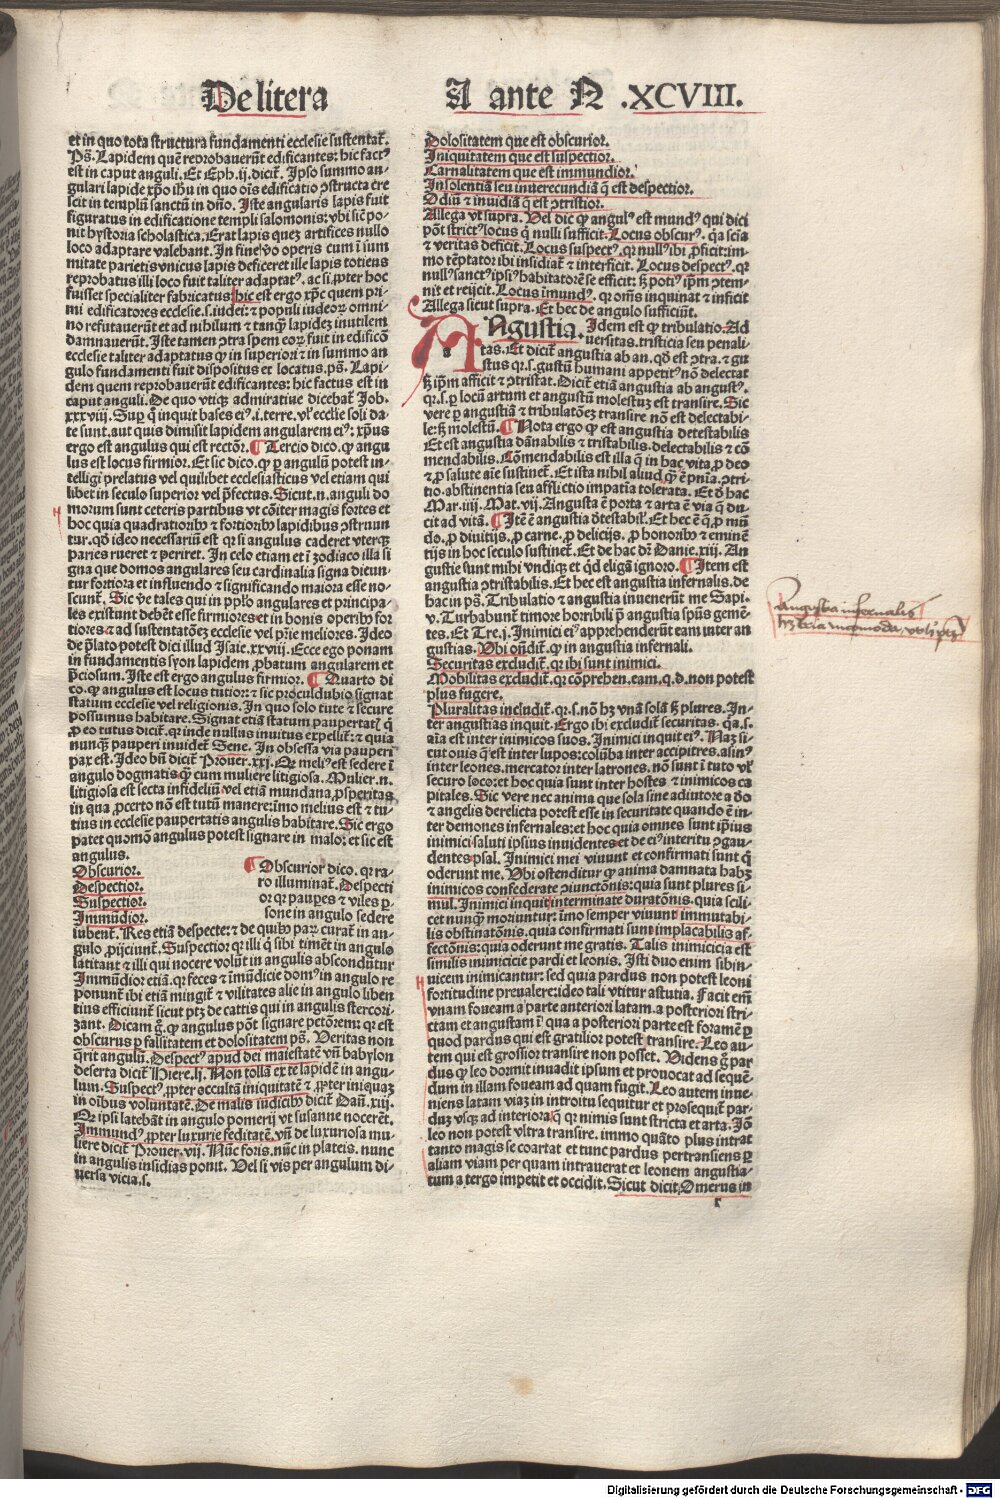 De litera
A ante N .XCVIII.
et in quo tota structura fundamenti ecclesie sustentat᷑.
Ps̄. Lapidem quē reprobauerūt edificantes: hic fact⁹
est in caput anguli. Et Eph. ij. dicit᷑. Ipso summo an-
gulari lapide xp̄o ihu in quo oīs edificatio ꝯstructa cre
scit in templū sanctū in dn̄o. Iste angularis lapis fuit
figuratus in edificatione templi salomonis: vbi sic po-
nit hystoria scholastica. Erat lapis quez artifices nullo
loco adaptare valebant. In fine v̓o operis cum ī sum
mitate parietis vnicus lapis deficeret ille lapis totiens
reprobatus illi loco fuit taliter adaptat⁹. ac si ꝓpter hoc
fuisset specialiter fabricatus hic est ergo xp̄c quem pri-
mi edificatores ecclesie .s. iudei: ⁊ populi iudeoꝝ omni-
no refutauerūt et ad nihilum ⁊ tanq̄ lapidez inutilem
damnauerūt. Iste tamen ꝯtra spem eoꝝ fuit in edificō
ecclesie taliter adaptatus ꝙ in superiori ⁊ in summo an
gulo fundamenti fuit dispositus ⁊ locatus. ps̄. Lapi-
dem quem reprobauerūt edificantes: hic factus est in
caput anguli. De quo vtiqꝫ admiratiue dicebat᷑ Job.
xxxviij. Suꝑ q̄ inquit bases ei⁹ .i. terre. vl̓ eccl̓ie soli da-
te sunt. aut quis dimisit lapidem angularem ei⁹: xp̄us
ergo est angulus qui est rectōr. ¶ Tercio dico. ꝙ angu
lus est locus firmior. Et sic dico. ꝙ ꝑ angulū potest in-
telligi prelatus vel quilibet ecclesiasticus vel etiam qui
libet in seculo superior vel ꝑfectus. Sicut .n. anguli do
morum sunt ceteris partibus vt cōiter magis fortes et
hoc quia quadratioribꝰ ⁊ fortioribꝰ lapidibus ꝯstruun
tur. qd̓ ideo necessariū est qꝛ si angulus caderet vterqꝫ
paries rueret ⁊ ꝑiret. In celo etiam et ī zodiaco illa si
gna que domos angulares seu cardinalia signa dicun-
tur fortiora et influendo ⁊ significando maiora esse no-
scunt᷑. Sic v̓e tales qui in pplo angulares et principa-
les existunt debēt esse firmiores et in bonis operibꝰ for
tiores ⁊ ad sustentatōez ecclesie vel pr̄ie meliores. Ideo
de p̄lato potest dici illud Isaie. xxviij. Ecce ego ponam
in fundamentis syon lapidem ꝓbatum angularem et
p̄ciosum. Iste est ergo angulus firmior. ¶ Quarto di
co. ꝙ angulus est locus tutior: ⁊ sic proculdubio signat
statum ecclesie vel religionis. In quo solo tute ⁊ secure
possumus habitare. Signat etiā statum paupertat᷑ q̄
ꝓ eo tutus dicit᷑. qꝛ inde nullus inuitus expellit᷑: ⁊ quia
nunqꝫ pauperi inuidet᷑ Sene. In obsessa via pauperi
pax est. Ideo bn̄ dicit᷑ Prouer. xxj. Qꝛ meli⁹ est sedere ī
angulo dogmatis qꝫ cum muliere litigiosa. Mulier .n.
litigiosa est secta infideliū vel etiam mundana ꝓsperitas
in qua ꝓcerto nō est tutū manere: īmo melius est ⁊ tu-
tius in ecclesie paupertatis angulis habitare. Sic ergo
patet quomō angulus potest signare in malo: et sic est
angulus.
Obscurior. ¶ Obscurior dico. qꝛ ra-
Despectior. ro illuminat᷑. Despecti
Suspectior. or qꝛ pauꝑes ⁊ viles ꝑ-
Immūdior. sone in angulo sedere
iubent᷑. Res etiā despecte: ⁊ de quibꝰ paꝝ curat᷑ in an-
gulo ꝓijciunt᷑. Suspectior qꝛ illi q̄ sibi timēt in angulo
latitant ⁊ illi qui nocere volūt in angulis abscondūtur
Immūdior etiā. qꝛ feces ⁊ īmūdicie dom⁹ in angulo re
ponunt᷑ ibi etiā mingit᷑ ⁊ vilitates alie in angulo liben
tius efficiunt᷑ sicut ptꝫ de cattis qui in angulis stercori-
zant. Dicam g̊. ꝙ angulus pōt signare petōrem: qꝛ est
obscurus ꝑ fallitatem et dolositatem ps̄. Veritas non
q̄rit angulū. Despect⁹ apud dei maiestatē vn̄ babylon
deserta dicit᷑ Hiere. lj. Non tollā ex te lapidē in angu-
lum. Suspect⁹ ꝓpter occultā iniquitatē ⁊ ꝓpter iniquaꝫ
in oībus voluntatē. De malis iudicibꝰ dicit᷑ Dan̄. xiij.
Qꝛ ipsi latebāt in angulo pomerij vt susanne nocerēt.
Immund⁹ ꝓpter luxurie feditatē. vn̄ de luxuriosa mu-
liere dicit᷑ Prouer. vij. Nūc foris. nūc in plateis. nunc
in angulis insidias ponit. Vel si vis per angulum di-
uersa vicia .s.
Dolositatem que est obscurior.
Iniquitatem que est suspectior.
Carnalitatem que est immundior.
Insolentiā seu inuerecundiā q̄ est despectior.
Odiū ⁊ inuidiā q̄ est ꝯtristior.
Allega vt supra. Vel dic ꝙ angul⁹ est mund⁹ qui dici
pōt strict⁹ locus q̄ nulli sufficit. Locus obscur⁹. q̄a scīa
⁊ veritas deficit. Locus suspect⁹. qꝛ null⁹ ibi ꝓficit: im-
mo tēptator ibi insidiat᷑ ⁊ interficit. Locus despect⁹. qꝛ
null⁹ sanct⁹ ips⁹ habitatorē se efficit: sꝫ poti⁹ ip̄m ꝯtem-
nit et reijcit. Locus īmund⁹. qꝛ om̄s inquinat ⁊ inficit
Allega sicut supra. Et hec de angulo sufficiūt.
ANgustia. Idem est ꝙ tribulatio. Ad
uersitas. tristicia seu penali-
tas. Et dicit᷑ angustia ab an. qd̓ est ꝯtra. ⁊ gu
stus qꝛ .s. gustū humani appetit⁹ nō delectat
sꝫ ip̄m afficit ⁊ ꝯtristat. Dicit᷑ etiā angustia ab angust⁹.
qꝛ .s. ꝑ locū artum et angustū molestuꝫ est transire. Sic
vere ꝑ angustiā ⁊ tribulatōeꝫ transire nō est delectabi-
le: sꝫ molestū. ¶ Nota ergo ꝙ est angustia detestabilis
Et est angustia dānabilis ⁊ tristabilis. delectabilis ⁊ cō
mendabilis. Cōmendabilis est illa q̄ in hac vita ꝓ deo
⁊ ꝓ salute aīe sustinet᷑. Et ista nihil aliud qꝫ ē pn̄ia. ꝯtri-
tio. abstinentia seu afflictio impatīa tolerata. Et d̓ hac
Mar. iiij. Mat. vij. Angusta ē porta ⁊ arta ē via q̄ du-
cit ad vitā. ¶ Itē ē angustia d̓testabil̓. Et hec ē q̄ ꝓ mū
do. ꝓ diuitijs. ꝓ carne. ꝓ delicijs. ꝓ honoribꝰ ⁊ eminē
tijs in hoc seculo sustinet᷑. Et de hac dr̄ Danie. xiij. An
gustie sunt mihi vndiqꝫ et qd̓ eligā ignoro. ¶ Item est
angustia ꝯtristabilis. Et hec est angustia infernalis. de
hac in ps̄. Tribulatio ⁊ angustia inuenerūt me Sapi-
v. Turbabunt᷑ timore horribili p̄ angustia sp̄us gemē-
tes. Et Tre. j. Inimici ei⁹ apprehenderūt eam inter an
gustias. Vbi on̄dit᷑. ꝙ in angustia infernali.
Securitas excludit᷑. qꝛ ibi sunt inimici.
Mobilitas excludit᷑. qꝛ cōprehen. eam. q. d. non potest
plus fugere.
Pluralitas includit᷑. qꝛ .s. nō hꝫ vnā solā sꝫ plures. In-
ter angustias inquit. Ergo ibi excludit᷑ securitas. q̄a .s.
aīa est inter inimicos suos. Inimici inquit ei⁹. Naꝫ si-
cut ouis q̄ est inter lupos: colūba inter accipitres. asin⁹
inter leones. mercator inter latrones. nō sunt ī tuto vl̓
securo loco: et hoc quia sunt inter hostes ⁊ inimicos ca
pitales. Sic vere nec anima que sola sine adiutore a d̓o
⁊ angelis derelicta potest esse in securitate quando ē in-
ter demones infernales: et hoc quia omnes sunt ip̄ius
inimici saluti ipsius inuidentes et de ei⁹ interitu ꝯgau-
dentes psal. Inimici mei viuunt et confirmati sunt q̄
oderunt me. Vbi ostenditur ꝙ anima damnata habꝫ
inimicos confederate ꝓiunctōnis: quia sunt plures si-
mul. Inimici inquit interminate duratōnis. quia scili-
cet nunqꝫ moriuntur: īmo semper viuunt immutabi-
lis obstinatōnis. quia confirmati sunt implacabilis af-
fectōnis: quia oderunt me gratis. Talis inimicicia est
similis inimicicie pardi et leonis. Isti duo enim sibin-
uicem inimicantur: sed quia pardus non potest leoni
fortitudine preualere: ideo tali vtitur astutia. Facit em̄
vnam foueam a parte anteriori latam. a posteriori stri-
ctam et angustam ī qua a posteriori parte est foramē ꝑ
quod pardus qui est gratilior potest transire. Leo au-
tem qui est grossior transire non posset. Videns g̊ par
dus ꝙ leo dormit inuadit ipsum et prouocat ad sequē-
dum in illam foueam ad quam fugit. Leo autem inue-
niens latam viaꝫ in introitu sequitur et prosequit᷑ par-
duꝫ vsqꝫ ad interiora q̄ qꝛ nimis sunt stricta et arta. Iō
leo non potest vltra transire. immo quāto plus intrat
tanto magis se coartat et tunc pardus pertransiens ꝑ
aliam viam per quam intrauerat et leonem angustia-
tum a tergo impetit et occidit. Sicut dicit Omerus in
r
Angustia infernalis
Digitalisierung gefördert durch die Deutsche Forschungsgemeinschaft - DFG